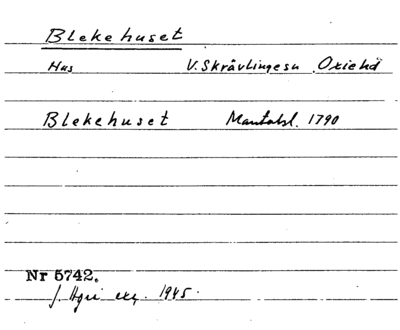 Blekehuset
Hus V. Skrävlinge sn Oxie hd
Blekehuset Mantalsl. 1790
Nr 5742.
exc. 1945.